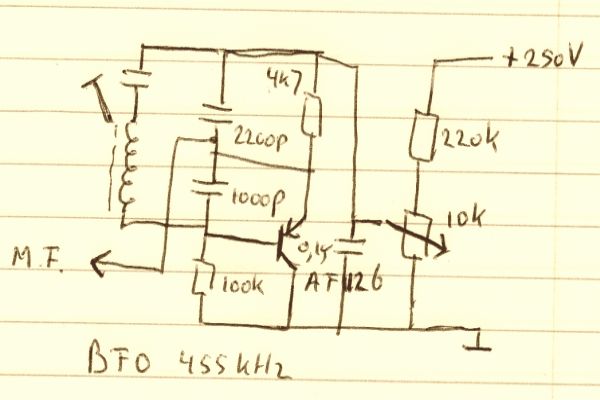 +250V
4k7
2200p
220k
1000p
10k
M.F.
0,1µ
100k
AF126
BFO 455kHz